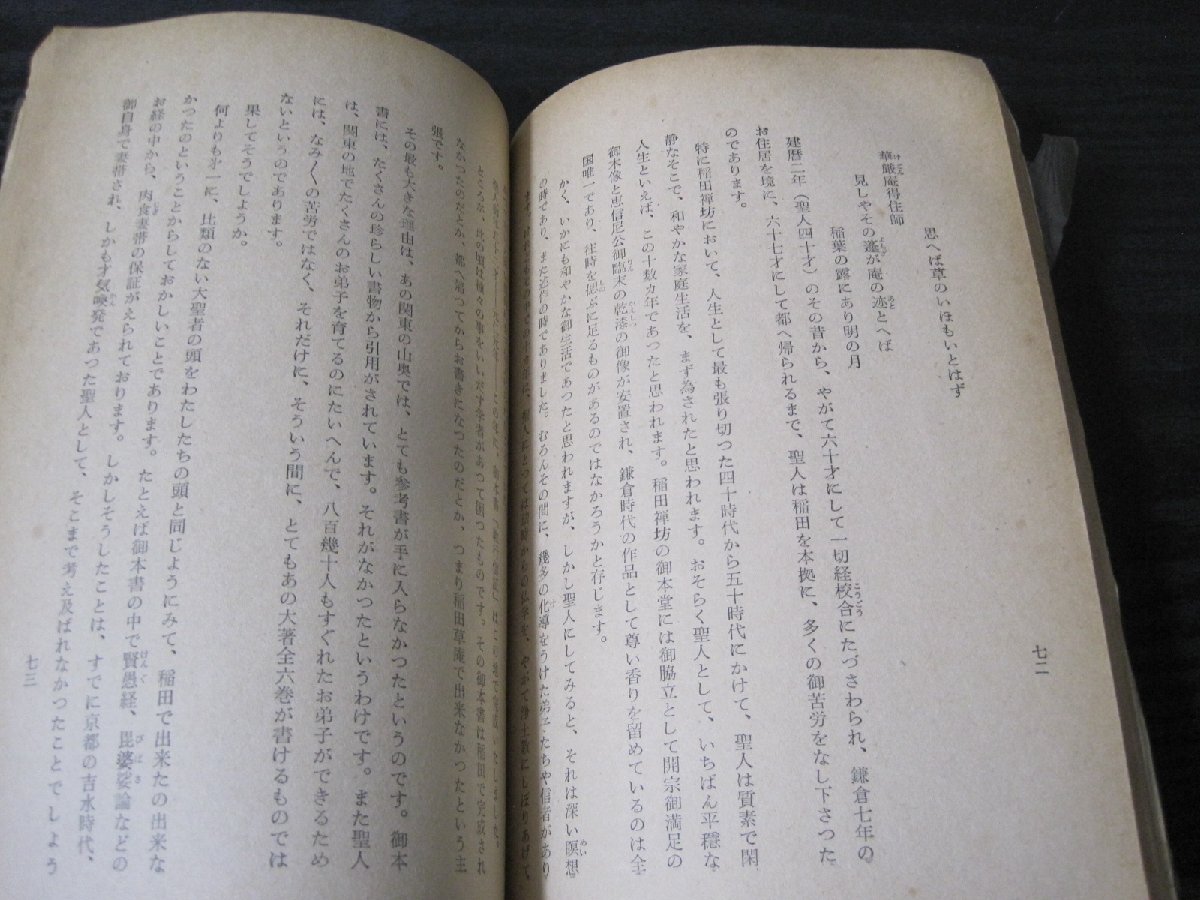 七二
思へば草のいほもいとはず
華厳庵得住師
見しやその蓬が庵の迹とへば
稲葉の露にあり明の月
建暦二年（聖人四十才）のその昔から、やがて六十才にして一切経校合にたづさわられ、鎌倉七年の
お住居を境に、六十七才にして都へ帰られるまで、聖人は稲田を本拠に、多くの御苦労をなし下さつた
のであります。
特に稲田禅坊において、人生として最も張り切つた四十時代から五十時代にかけて、聖人は質素で閑
静なそこで、和やかな家庭生活を、まず為されたと思われます。おそらく聖人として、いちばん平穏な
人生といえば、この十数カ年であつたと思われます。稲田禅坊の御本堂には御脇立として開宗御満足の
御木像と恵信尼公御臨末の乾漆の御像が安置され、鎌倉時代の作品として尊い香りを留めているのは全
国唯一であり、往時を偲ぶに足るものがあるのではなかろうかと存じます。
かく、いかにも和やかな御生活であつたと思われますが、しかし聖人にしてみると、それは深い瞑想
の時であり、また述作の時でありました。むろんその間に、幾多の化導をうけた弟子たちや信者があり
張です。
その最も大きな理由は、あの関東の山奥では、とても参考書が手に入らなかつたというのです。御本
書には、たくさんの珍らしい書物から引用がされています。それがなかつたというわけです。また聖人
は、関東の地でたくさんのお弟子を育てるのにたいへんで、八百幾十人もすぐれたお弟子ができるため
には、なみ〳〵の苦労ではなく、それだけに、そういう間に、とてもあの大著全六巻が書けるものでは
ないというのであります。
果してそうでしようか。
何よりも第一に、比類のない大聖者の頭をわたしたちの頭と同じようにみて、稲田で出来たの出来な
かつたのということからしておかしいことであります。たとえば御本書の中で賢愚経、毘婆娑論などの
お経の中から、肉食妻帯の保証がえられております。しかしそうしたことは、すでに京都の吉水時代、
御自身で妻帯され、しかも才気喚発であつた聖人として、そこまで考え及ばれなかつたことでしよう
七三